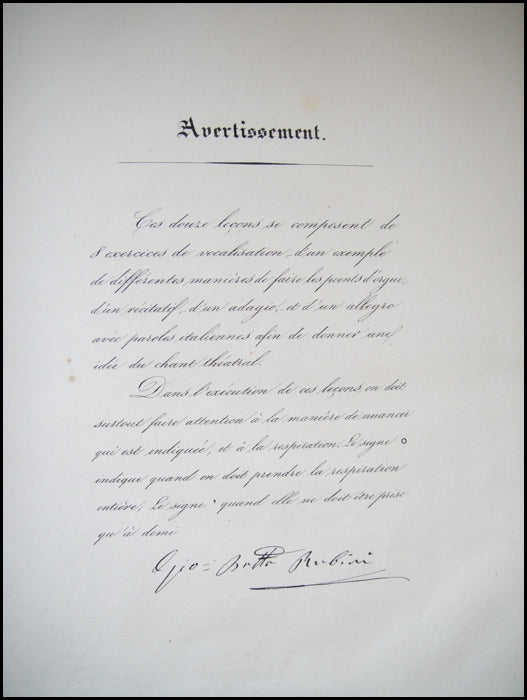 Avertissement.
Ces douze leçons se composent de
8 exercices de vocalisation, d'un exemple
de différentes manières de faire les points d'orgue,
d'un récitatif, d'un adagio, et d'un allegro
avec paroles italiennes afin de donner une
idée du chant théâtral.
Dans l'exécution de ces leçons, on doit
surtout faire attention à la manière de nuancer
qui est indiqueé, et à la respiration. Le signe o
indique quand on doit prendre la respiration
entière; Le signe ' quand elle ne doit être prise
qu'à demi.
Gio: Batta Rubini